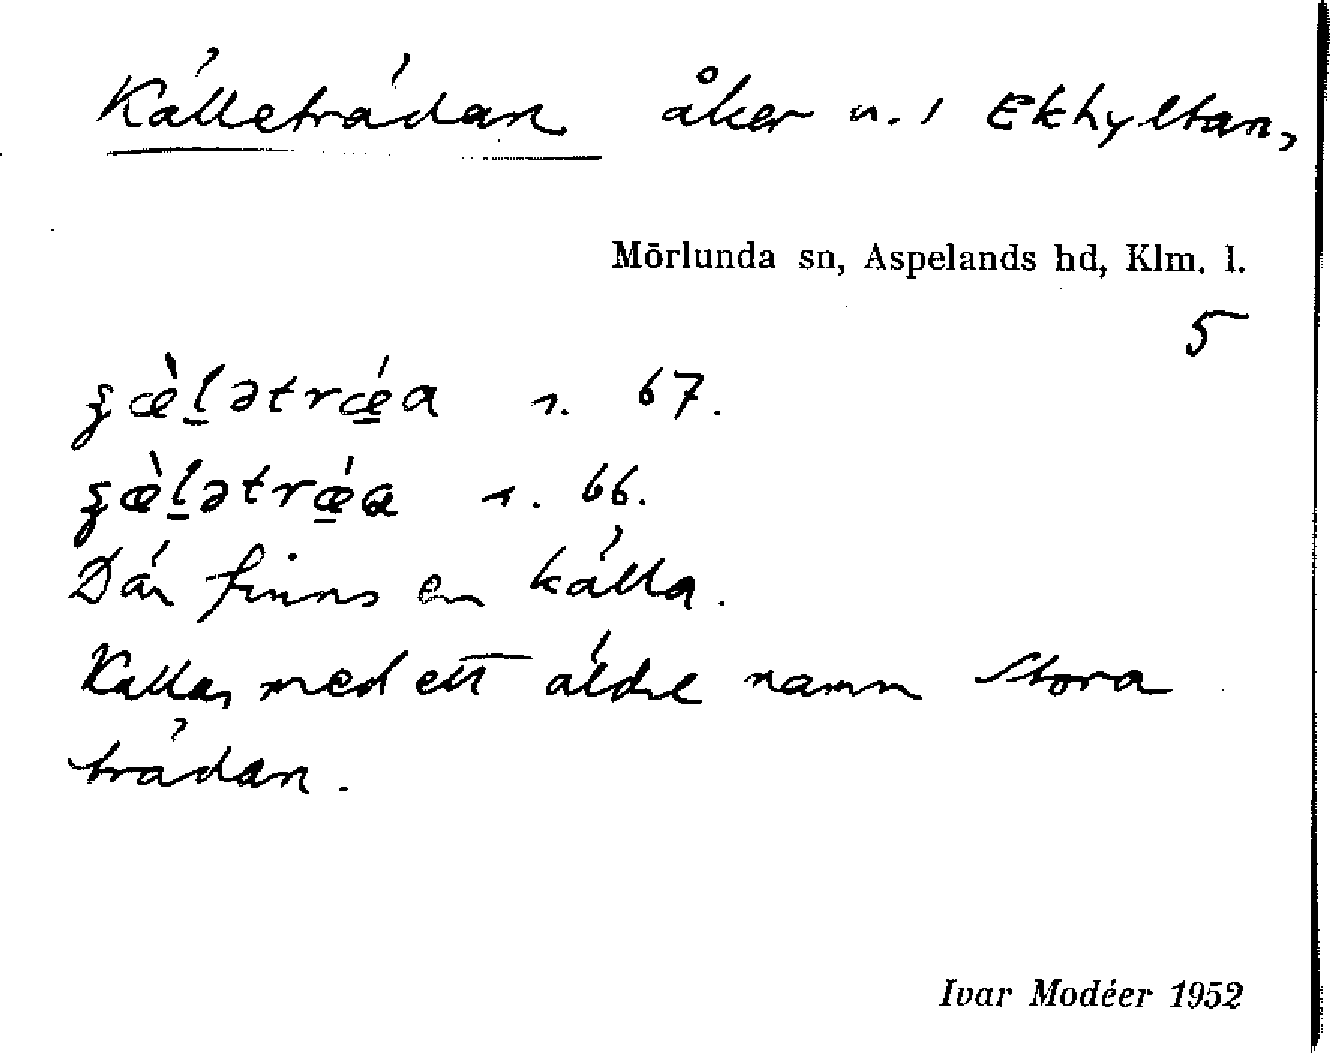 Källeträdan åker n. 1 Ekhyltan,
Mörlunda sn, Aspelands hd, Klm. l.
5
s. 67.
s. 66.
Där finns en källa.
Kallas med ett äldre namn Stora
trädan.
Ivar Modéer 1952